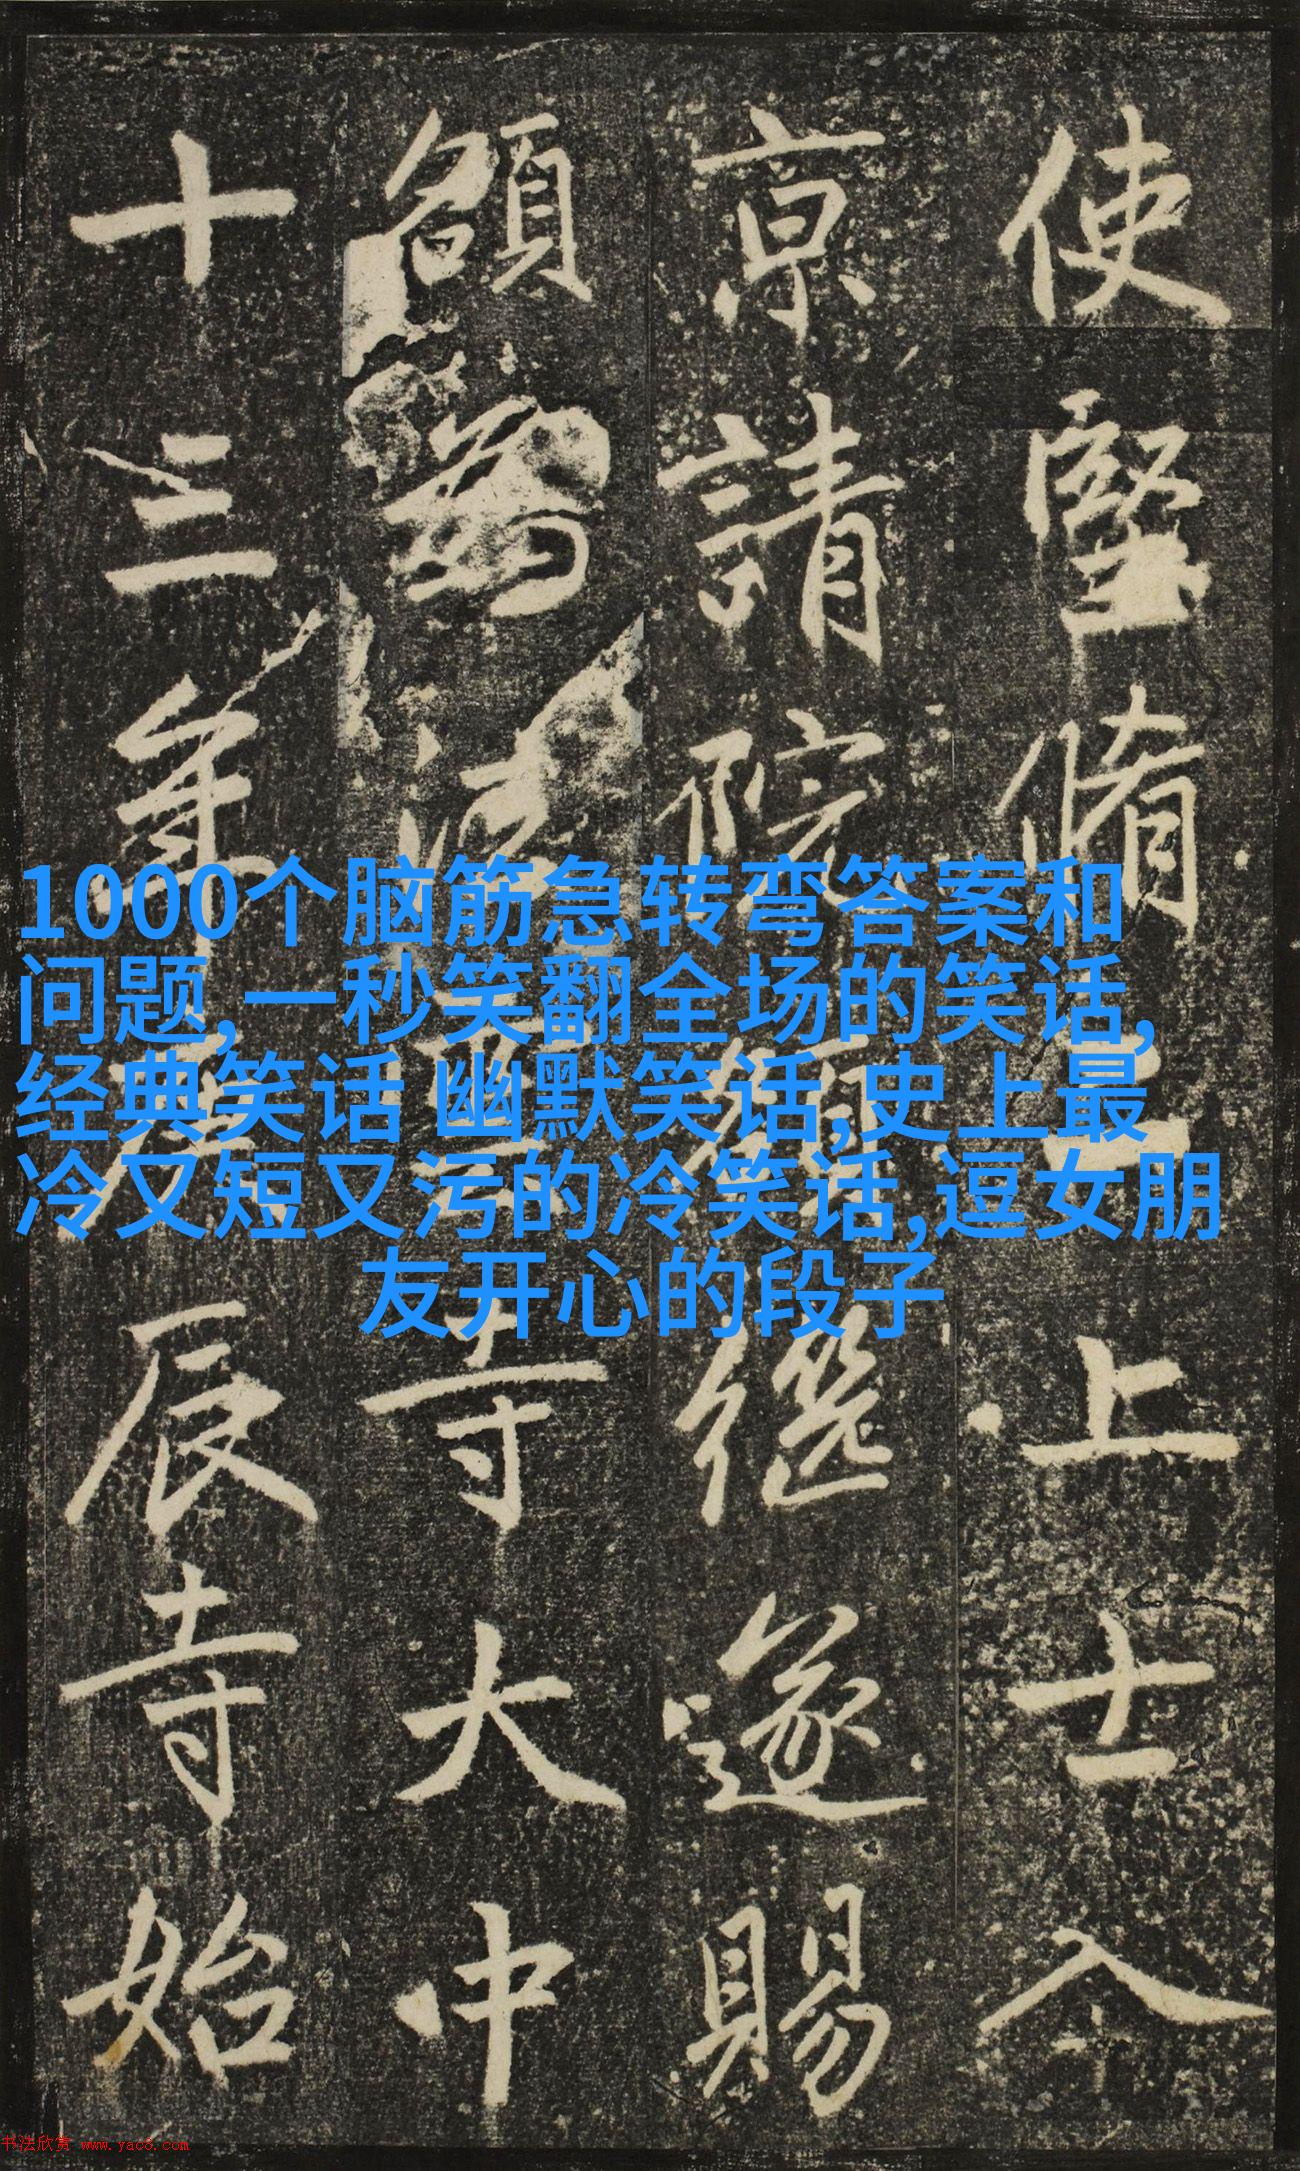 使堅脩上士入
京請院額繼遂賜
額為法雲寺大中
十三年庚辰寺始
1000个脑筋急转弯答案和
问题,一秒笑翻全场的笑话,
经典笑话 幽默笑话,史上最
冷又短又污的冷笑话,逗女朋
友开心的段子
书法欣赏 www.yac8.com